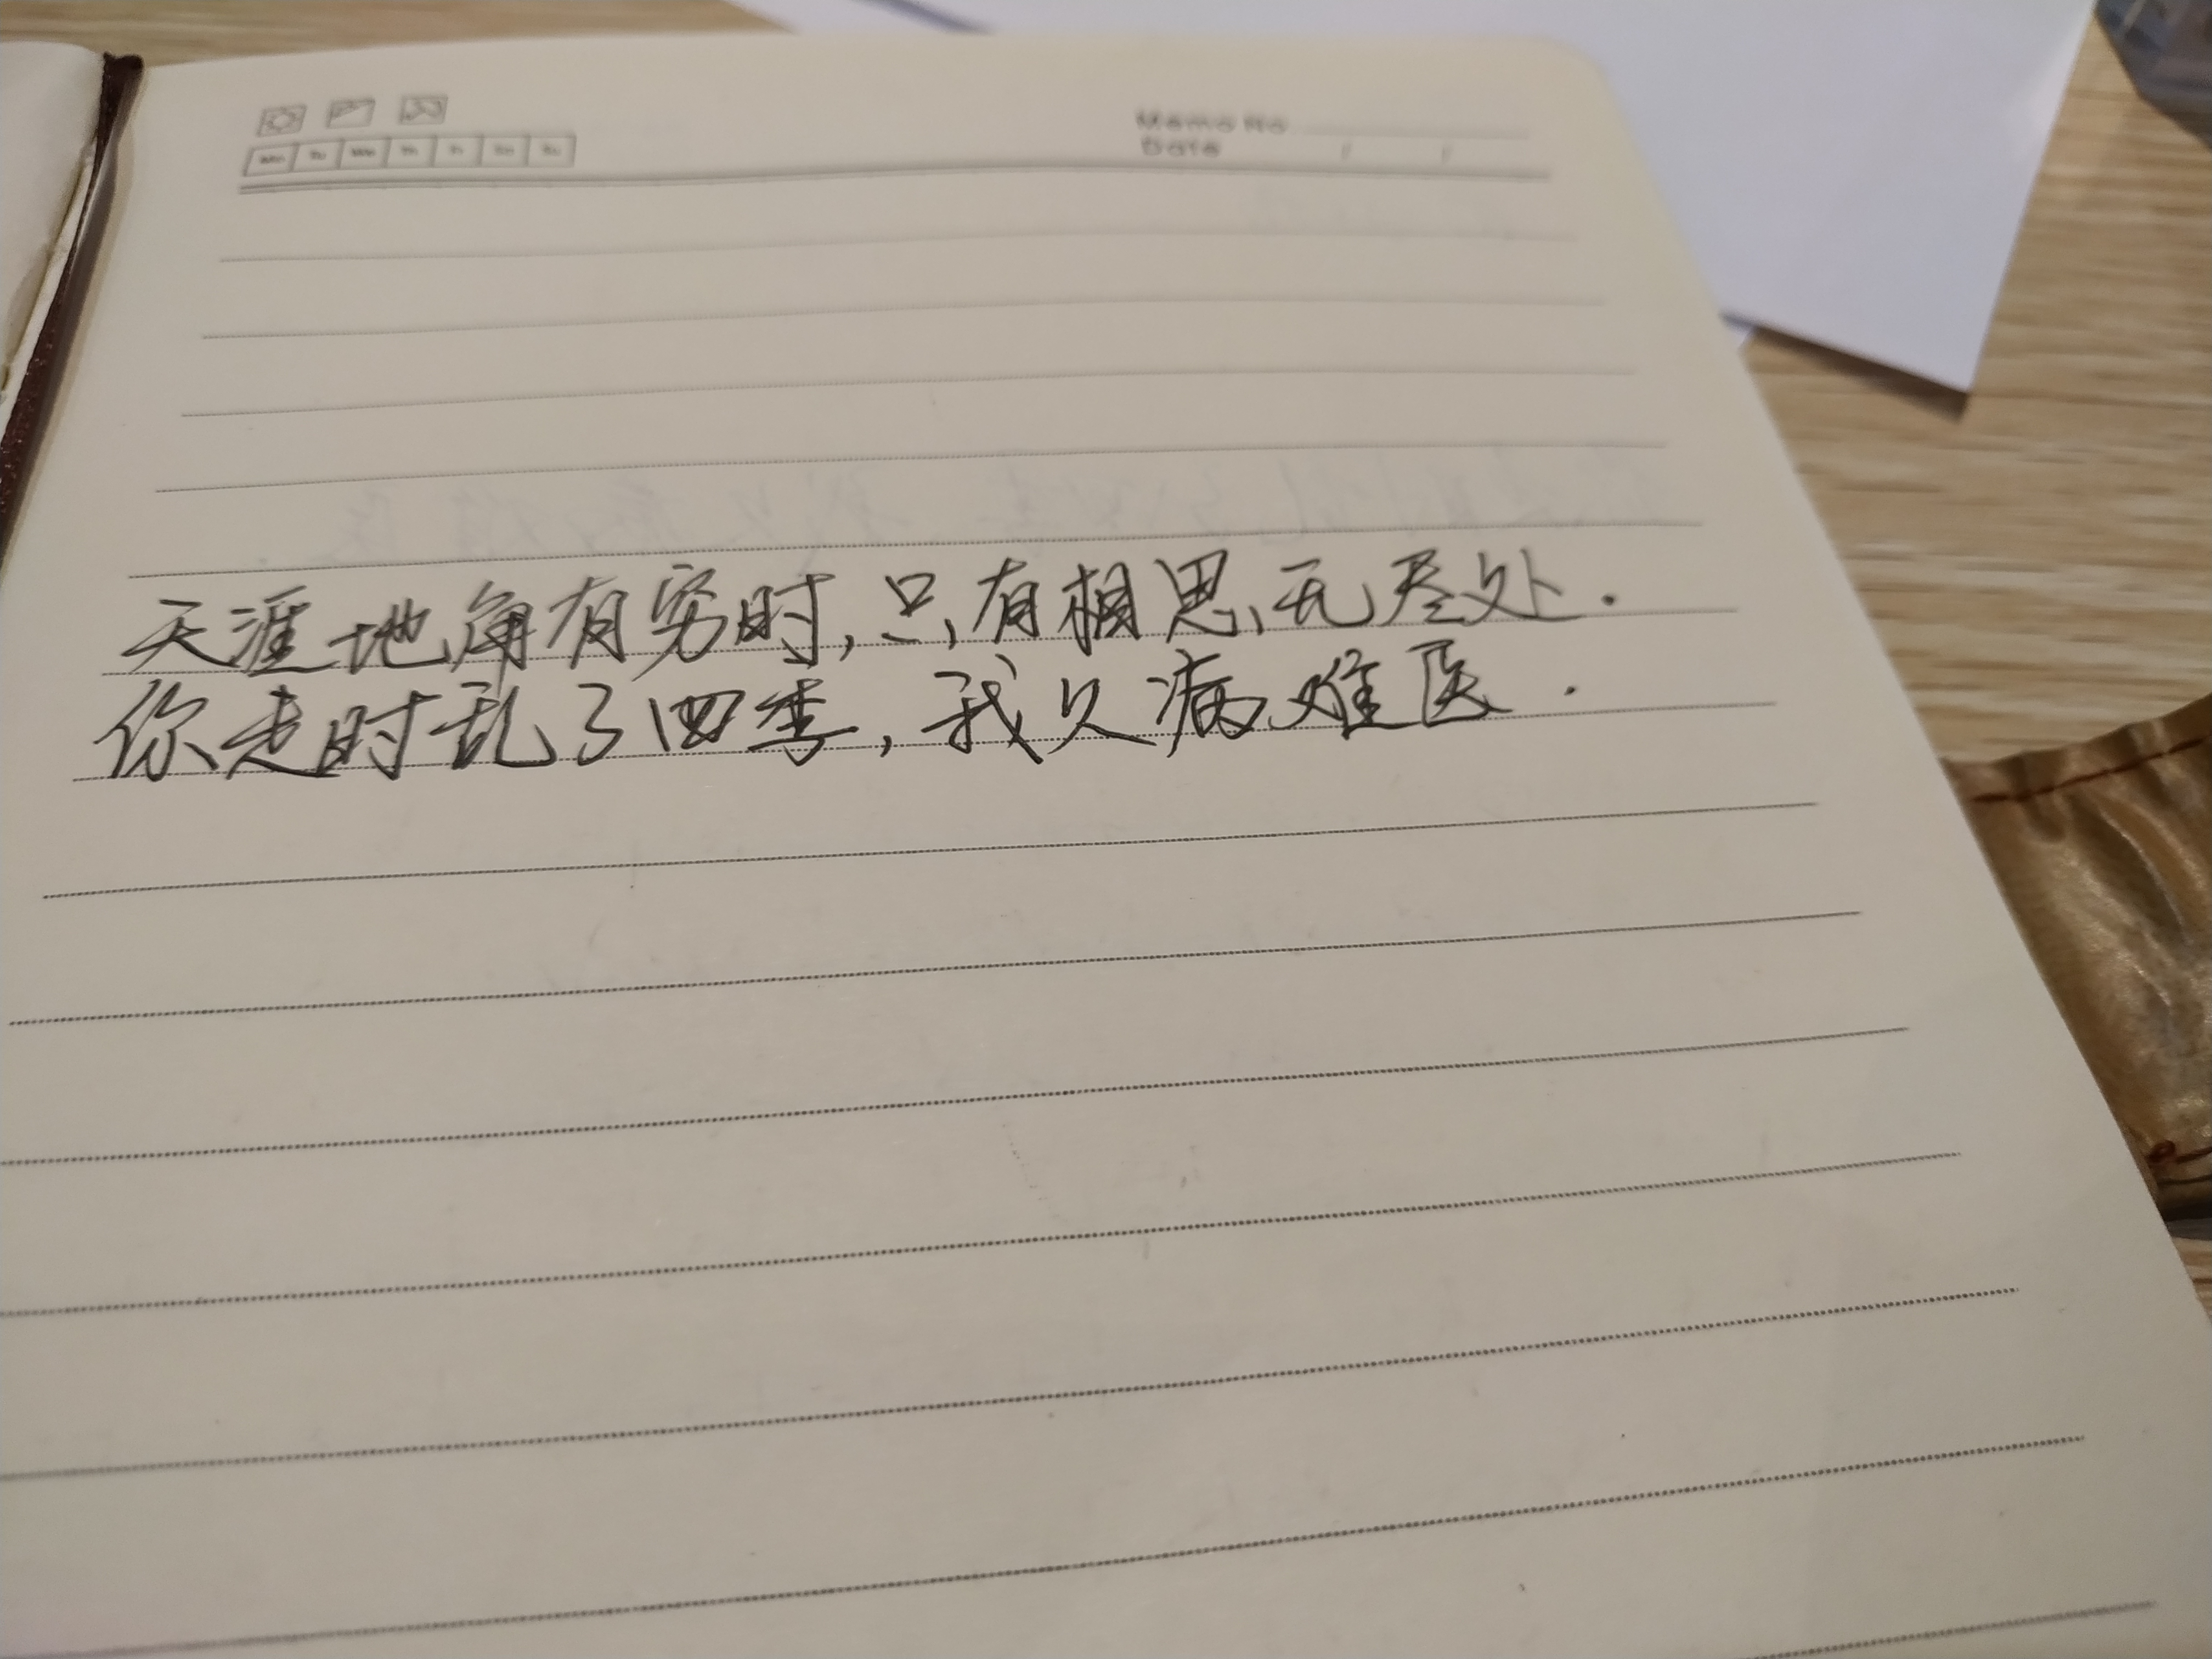 Memo No
Date / /
天涯地角有穷时,只有相思无尽处.
你走时乱了四季,我久病难医.